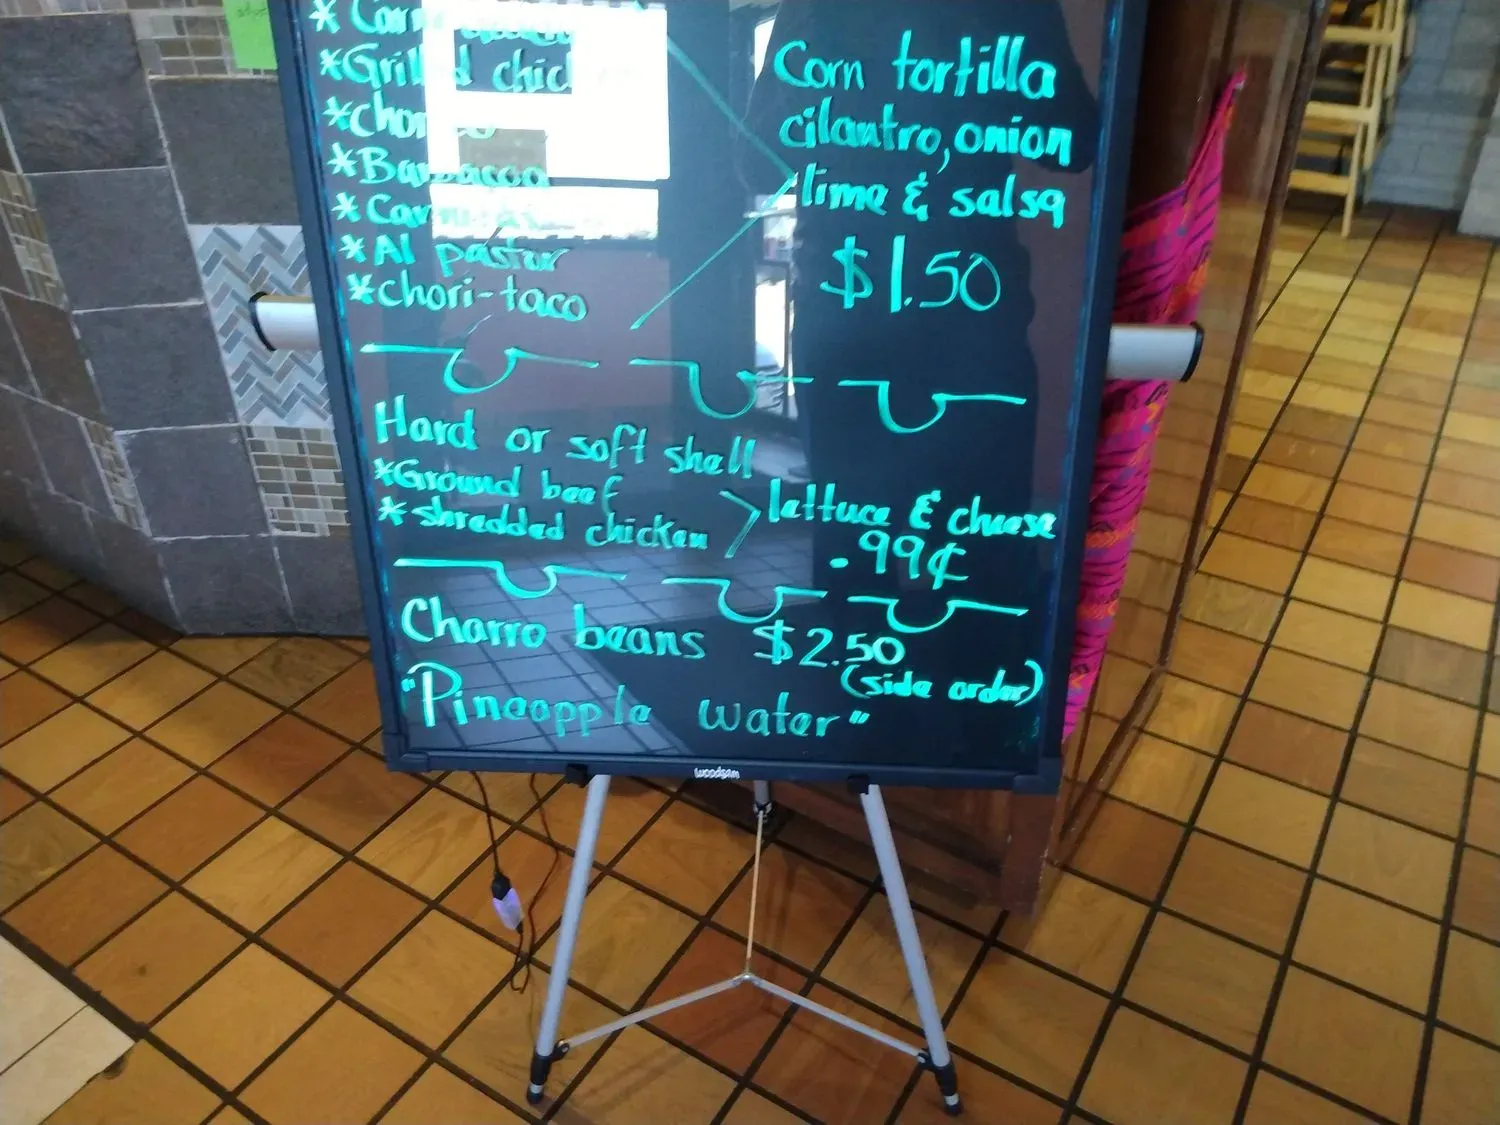 *Grilled chicken
*Chorizo
*Barbacoa
*Carnitas
*Al pastor
*chori-taco
Corn tortilla
cilantro, onion
lime & salsa
$1.50
Hard or soft shell
*Ground beef
*shredded chicken
lettuce & cheese
.99¢
Charro beans $2.50
(side order)
"Pineapple water"
woodsam